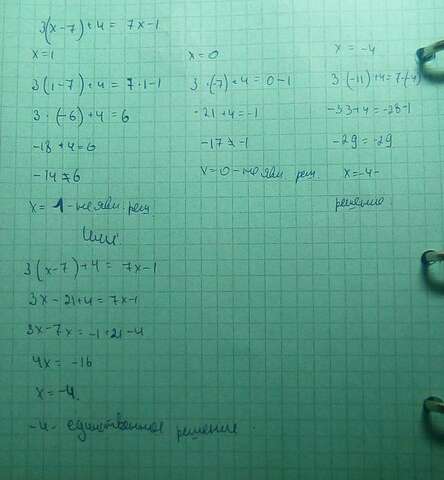 3(x-7)+4 = 7x-1
x=1
3(1-7)+4 = 7·1-1
3·(-6)+4=6
-18+4=6
-14≠6
x=1-не явл. реш.
x=0
3·(-7)+4=0-1
-21+4=-1
-17≠-1
x=0-не явл. реш.
x=-4
3(-11)+4=7·(-4)
-33+4=-28-1
-29=-29
x=-4-
решение
Или
3(x-7)+4= 7x-1
3x-21+4=7x-1
3x-7x=-1+21-4
4x= -16
x=-4.
-4- единственное решение.